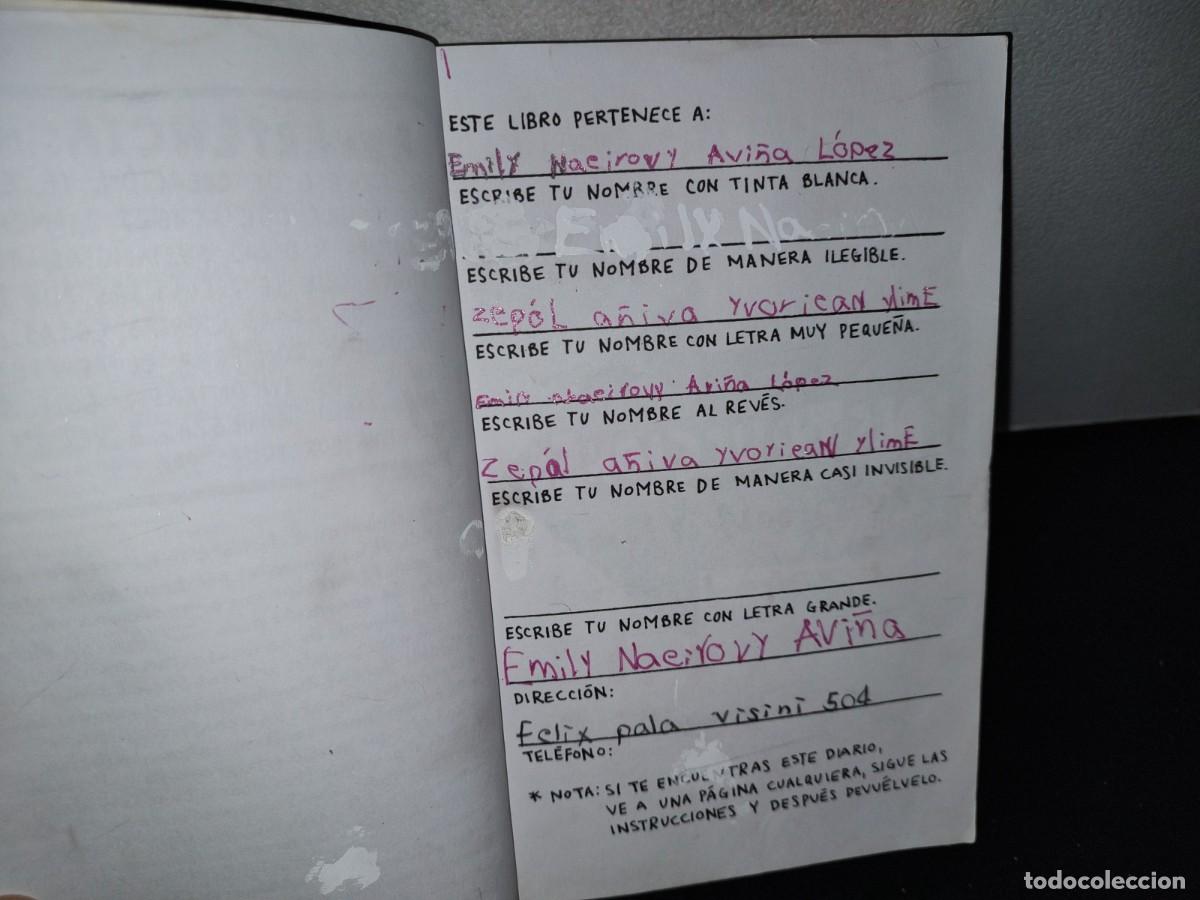 ESTE LIBRO PERTENECE A:
Emily Naeirovy Aviña López
ESCRIBE TU NOMBRE CON TINTA BLANCA.
Emily Naeir
ESCRIBE TU NOMBRE DE MANERA ILEGIBLE.
zepóL añiva YvorieaN ylimE
ESCRIBE TU NOMBRE CON LETRA MUY PEQUEÑA.
Emily Naeirovy Aviña López
ESCRIBE TU NOMBRE AL REVÉS.
Zepól añiva YvorieaN ylimE
ESCRIBE TU NOMBRE DE MANERA CASI INVISIBLE.
ESCRIBE TU NOMBRE CON LETRA GRANDE.
Emily Naeirovy Aviña
DIRECCIÓN:
Felix pala visini 504
TELÉFONO:
* NOTA: SI TE ENCUENTRAS ESTE DIARIO,
VE A UNA PÁGINA CUALQUIERA, SIGUE LAS
INSTRUCCIONES Y DESPUÉS DEVUÉLVELO.
todocoleccion